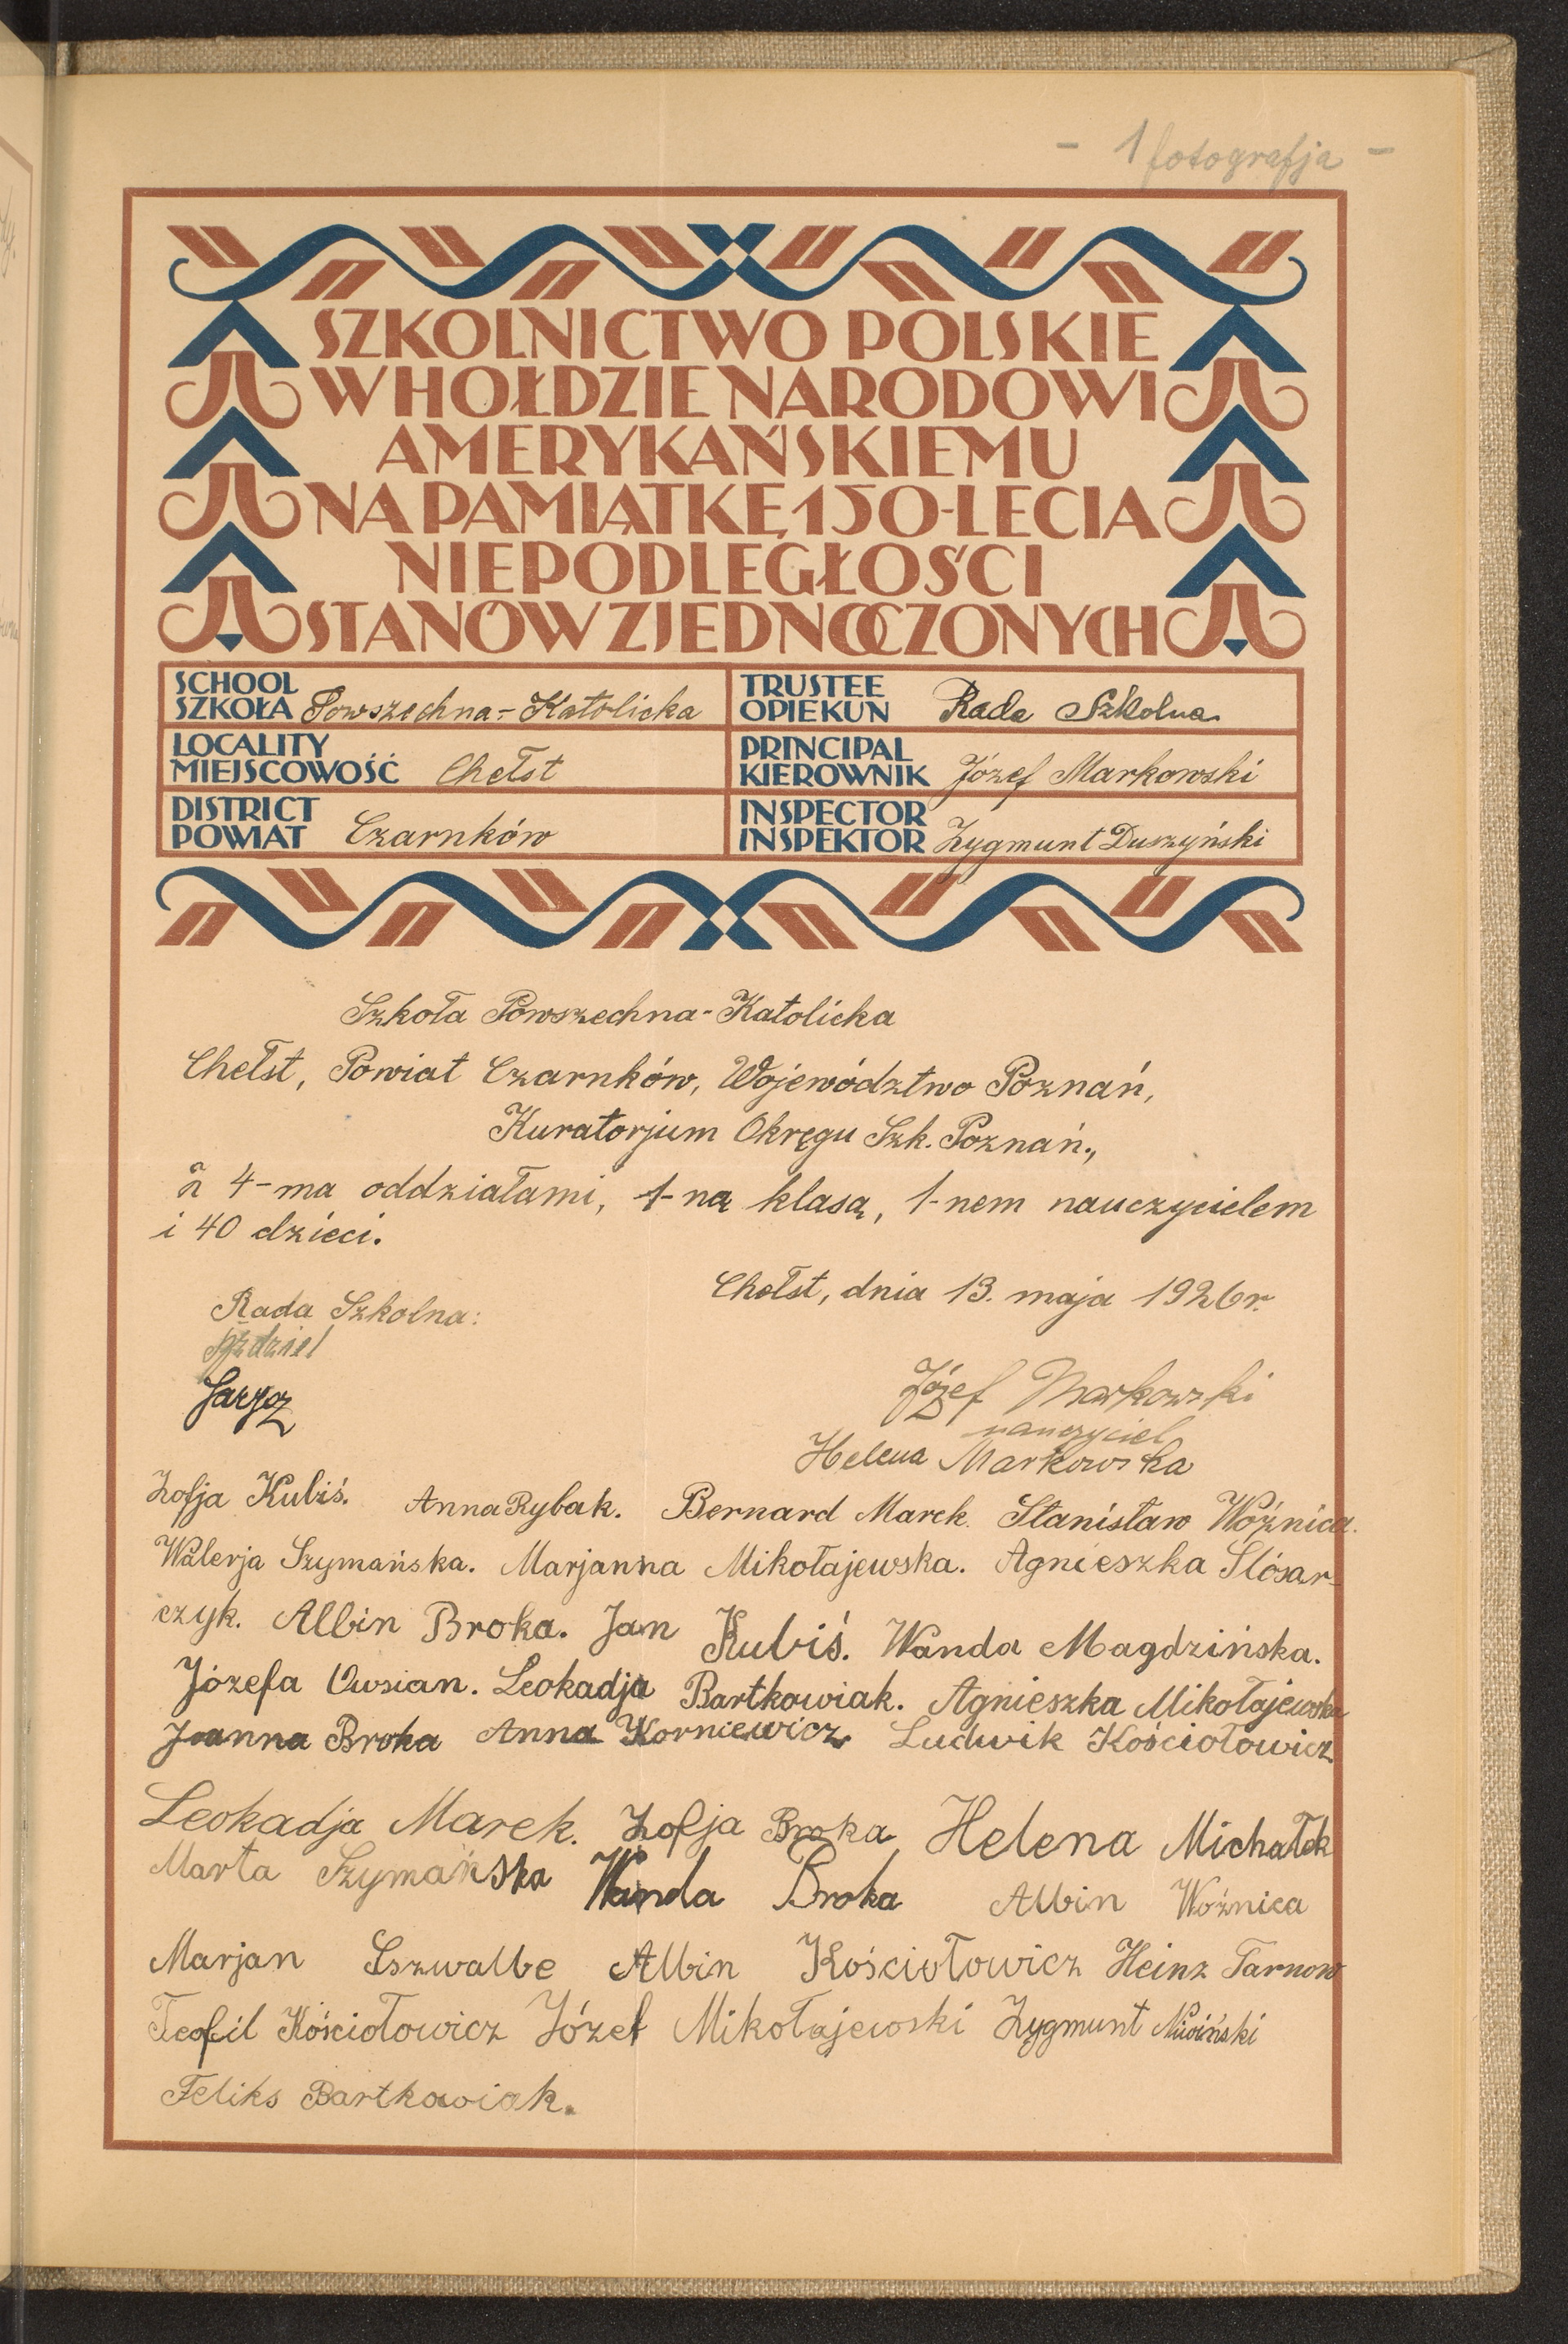 - 1 fotografja -
SZKOLNICTWO POLSKIE
W HOŁDZIE NARODOWI
AMERYKAŃSKIEMU
NA PAMIĄTKĘ 150-LECIA
NIEPODLEGŁOŚCI
STANÓW ZJEDNOCZONYCH
SCHOOL
SZKOŁA Powszechna-Katolicka
TRUSTEE
OPIEKUN Rada Szkolna
LOCALITY
MIEJSCOWOŚĆ Chełst
PRINCIPAL
KIEROWNIK Józef Markowski
DISTRICT
POWIAT Czarnków
INSPECTOR
INSPEKTOR Zygmunt Duszyński
Szkoła Powszechna-Katolicka
Chełst, Powiat Czarnków, Województwo Poznań,
Kuratorjum Okręgu Szk. Poznań.,
z 4-ma oddziałami, 1-ną klasą, 1-nem nauczycielem
i 40 dzieci.
Chełst, dnia 13. maja 1926r.
Rada Szkolna:
Józef Markowski
nauczyciel
Helena Markowska
Zofja Kubiś. Anna Rybak. Bernard Marek. Stanisław Woźnica.
Walerja Szymańska. Marjanna Mikołajewska. Agnieszka Ślósar-
czyk. Albin Broka. Jan Kubiś. Wanda Magdzińska.
Józefa Owsian. Leokadja Bartkowiak. Agnieszka Mikołajewska
Joanna Broka Anna Korniewicz. Ludwik Kościołowicz
Leokadja Marek. Zofja Broka Helena Michałek
Marta Szymańska Wanda Broka Albin Woźnica
Marjan Sszwalbe Albin Kościołowicz Heinz Tarnow
Teofil Kościołowicz Józef Mikołajewski Zygmunt Niwiński
Feliks Bartkowiak.